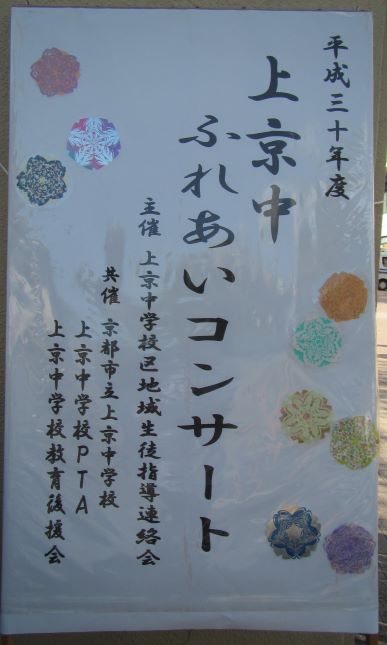 平成三十年度
上京中
ふれあいコンサート
主催 上京中学校区地域生徒指導連絡会
共催 京都市立上京中学校
上京中学校PTA
上京中学校教育後援会